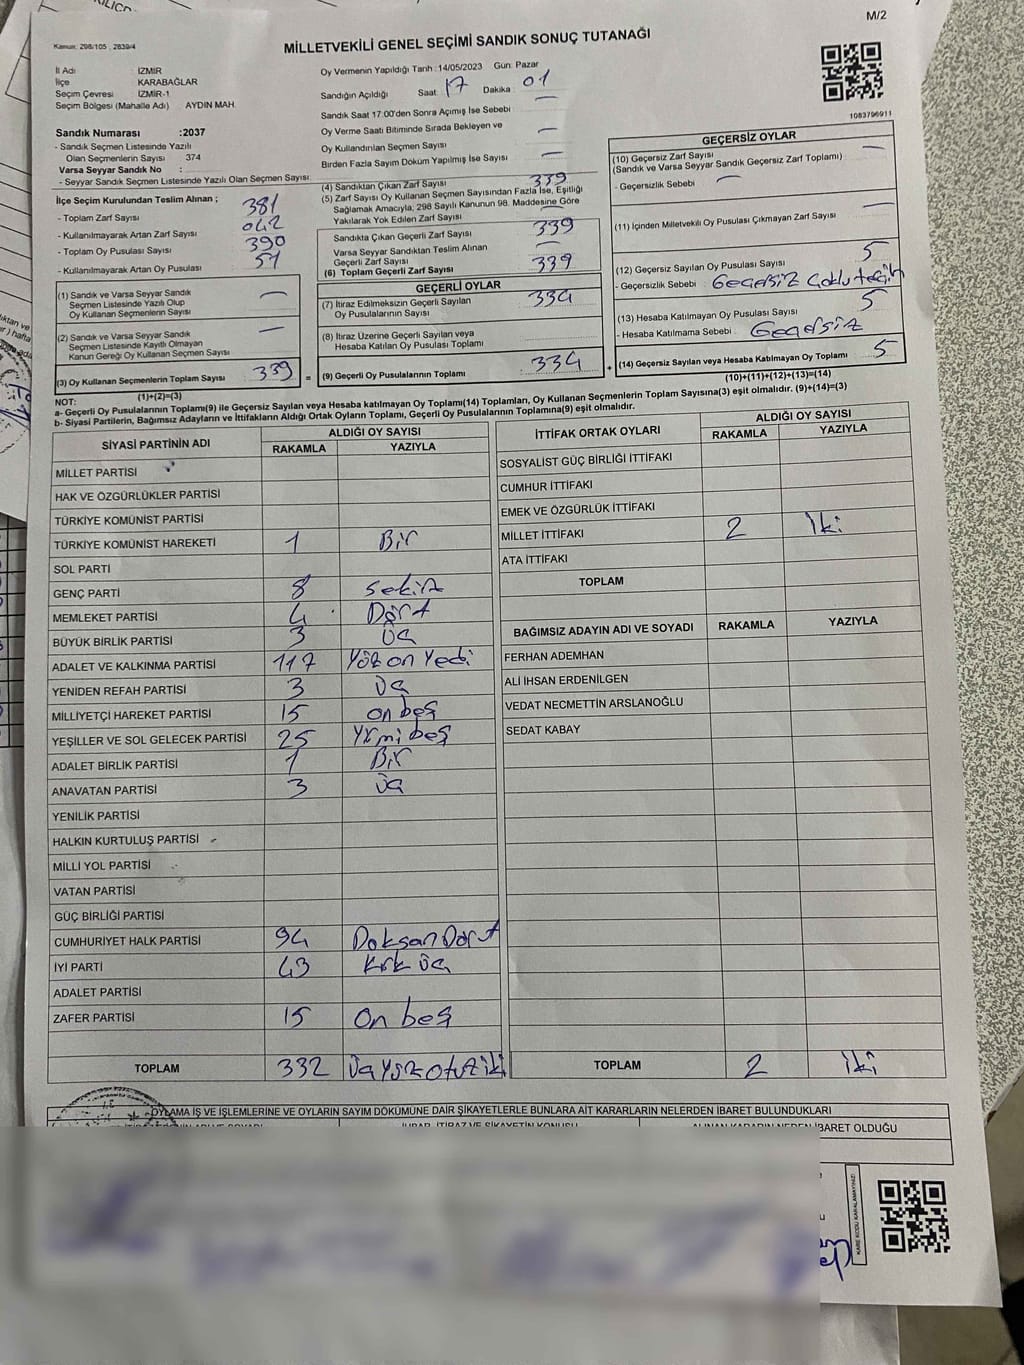 M/2
Kanun: 298/105 , 2839/4
MİLLETVEKİLİ GENEL SEÇİMİ SANDIK SONUÇ TUTANAĞI
İl Adı : İZMİR
İlçe : KARABAĞLAR
Seçim Çevresi : İZMİR-1
Seçim Bölgesi (Mahalle Adı) AYDIN MAH.
Sandık Numarası :2037
- Sandık Seçmen Listesinde Yazılı
Olan Seçmenlerin Sayısı : 374
Varsa Seyyar Sandık No :
- Seyyar Sandık Seçmen Listesinde Yazılı Olan Seçmen Sayısı:
Oy Vermenin Yapıldığı Tarih :14/05/2023 Gün: Pazar
Sandığın Açıldığı Saat 17 Dakika 01
Sandık Saat 17:00'den Sonra Açımış İse Sebebi —
Oy Verme Saati Bitiminde Sırada Bekleyen ve
Oy Kullandırılan Seçmen Sayısı —
Birden Fazla Sayım Döküm Yapılmış İse Sayısı —
1083796911
İlçe Seçim Kurulundan Teslim Alınan ;
- Toplam Zarf Sayısı 381
- Kullanılmayarak Artan Zarf Sayısı 042
- Toplam Oy Pusulası Sayısı 390
- Kullanılmayarak Artan Oy Pusulası 51
(1) Sandık ve Varsa Seyyar Sandık
Seçmen Listesinde Yazılı Olup
Oy Kullanan Seçmenlerin Sayısı —
(2) Sandık ve Varsa Seyyar Sandık
Seçmen Listesinde Kayıtlı Olmayan
Kanun Gereği Oy Kullanan Seçmen Sayısı —
(3) Oy Kullanan Seçmenlerin Toplam Sayısı 339
(1)+(2)=(3)
(4) Sandıktan Çıkan Zarf Sayısı 339
(5) Zarf Sayısı Oy Kullanan Seçmen Sayısından Fazla İse, Eşitliği
Sağlamak Amacıyla, 298 Sayılı Kanunun 98. Maddesine Göre
Yakılarak Yok Edilen Zarf Sayısı —
Sandıkta Çıkan Geçerli Zarf Sayısı 339
Varsa Seyyar Sandıktan Teslim Alınan
Geçerli Zarf Sayısı —
(6) Toplam Geçerli Zarf Sayısı 339
GEÇERLİ OYLAR
(7) İtiraz Edilmeksizin Geçerli Sayılan
Oy Pusulalarının Sayısı 334
(8) İtiraz Üzerine Geçerli Sayılan veya
Hesaba Katılan Oy Pusulası Toplamı
= (9) Geçerli Oy Pusulalarının Toplamı 334 +
GEÇERSİZ OYLAR
(10) Geçersiz Zarf Sayısı
(Sandık ve Varsa Seyyar Sandık Geçersiz Zarf Toplamı) —
- Geçersizlik Sebebi —
(11) İçinden Milletvekili Oy Pusulası Çıkmayan Zarf Sayısı —
(12) Geçersiz Sayılan Oy Pusulası Sayısı 5
- Geçersizlik Sebebi Geçersiz Çoklu tecih
(13) Hesaba Katılmayan Oy Pusulası Sayısı 5
- Hesaba Katılmama Sebebi . Geçersiz
(14) Geçersiz Sayılan veya Hesaba Katılmayan Oy Toplamı 5
(10)+(11)+(12)+(13)=(14)
NOT:
a- Geçerli Oy Pusulalarının Toplamı(9) ile Geçersiz Sayılan veya Hesaba katılmayan Oy Toplamı(14) Toplamları, Oy Kullanan Seçmenlerin Toplam Sayısına(3) eşit olmalıdır. (9)+(14)=(3)
b- Siyasi Partilerin, Bağımsız Adayların ve İttifakların Aldığı Ortak Oyların Toplamı, Geçerli Oy Pusulalarının Toplamına(9) eşit olmalıdır.
SİYASİ PARTİNİN ADI ALDIĞI OY SAYISI
RAKAMLA YAZIYLA
MİLLET PARTİSİ
HAK VE ÖZGÜRLÜKLER PARTİSİ
TÜRKİYE KOMÜNİST PARTİSİ
TÜRKİYE KOMÜNİST HAREKETİ 1 Bir
SOL PARTİ
GENÇ PARTİ 8 sekiz
MEMLEKET PARTİSİ 4 Dört
BÜYÜK BİRLİK PARTİSİ 3 Üç
ADALET VE KALKINMA PARTİSİ 117 Yüz on Yedi
YENİDEN REFAH PARTİSİ 3 Üç
MİLLİYETÇİ HAREKET PARTİSİ 15 on beş
YEŞİLLER VE SOL GELECEK PARTİSİ 25 Yirmi beş
ADALET BİRLİK PARTİSİ 1 Bir
ANAVATAN PARTİSİ 3 üç
YENİLİK PARTİSİ
HALKIN KURTULUŞ PARTİSİ
MİLLİ YOL PARTİSİ
VATAN PARTİSİ
GÜÇ BİRLİĞİ PARTİSİ
CUMHURİYET HALK PARTİSİ 94 Doksan Dört
İYİ PARTİ 43 kırk üç
ADALET PARTİSİ
ZAFER PARTİSİ 15 On beş
TOPLAM 332 Üçyüz otuz iki
İTTİFAK ORTAK OYLARI ALDIĞI OY SAYISI
RAKAMLA YAZIYLA
SOSYALİST GÜÇ BİRLİĞİ İTTİFAKI
CUMHUR İTTİFAKI
EMEK VE ÖZGÜRLÜK İTTİFAKI
MİLLET İTTİFAKI 2 İki
ATA İTTİFAKI
TOPLAM
BAĞIMSIZ ADAYIN ADI VE SOYADI RAKAMLA YAZIYLA
FERHAN ADEMHAN
ALİ İHSAN ERDENİLGEN
VEDAT NECMETTİN ARSLANOĞLU
SEDAT KABAY
TOPLAM 2 İki
OYLAMA İŞ VE İŞLEMLERİNE VE OYLARIN SAYIM DÖKÜMÜNE DAİR ŞİKAYETLERLE BUNLARA AİT KARARLARIN NELERDEN İBARET BULUNDUKLARI
İBARET OLDUĞU
KARE KODU KARALAMAYINIZ!